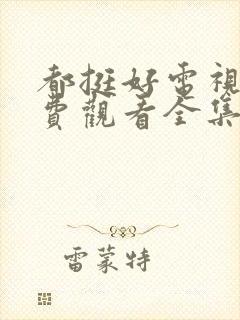 都挺好電視
費觀看全集
雷蒙特